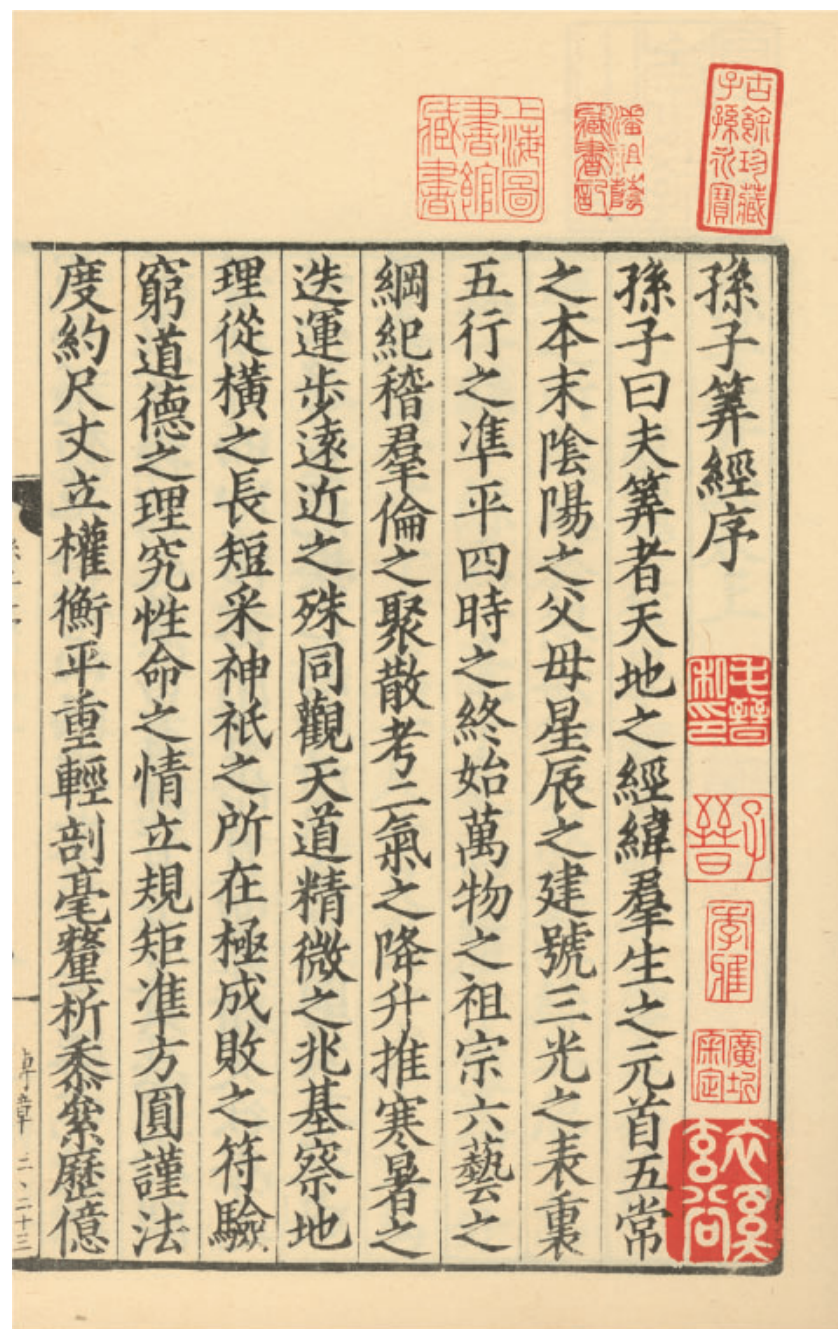 孫子筭經序
孫子曰夫筭者天地之經緯羣生之元首五常
之本末陰陽之父母星辰之建號三光之表裏
五行之準平四時之終始萬物之祖宗六藝之
綱紀稽羣倫之聚散考二氣之降升推寒暑之
迭運步遠近之殊同觀天道精微之兆基察地
理從橫之長短采神祇之所在極成敗之符驗
窮道德之理究性命之情立規矩準方圓謹法
度約尺丈立權衡平重輕剖毫釐析黍絫歷億
古餘珍藏
子孫永寶
潘祖蔭
藏書記
上海圖
書館
藏書
毛晉
私印
子晉